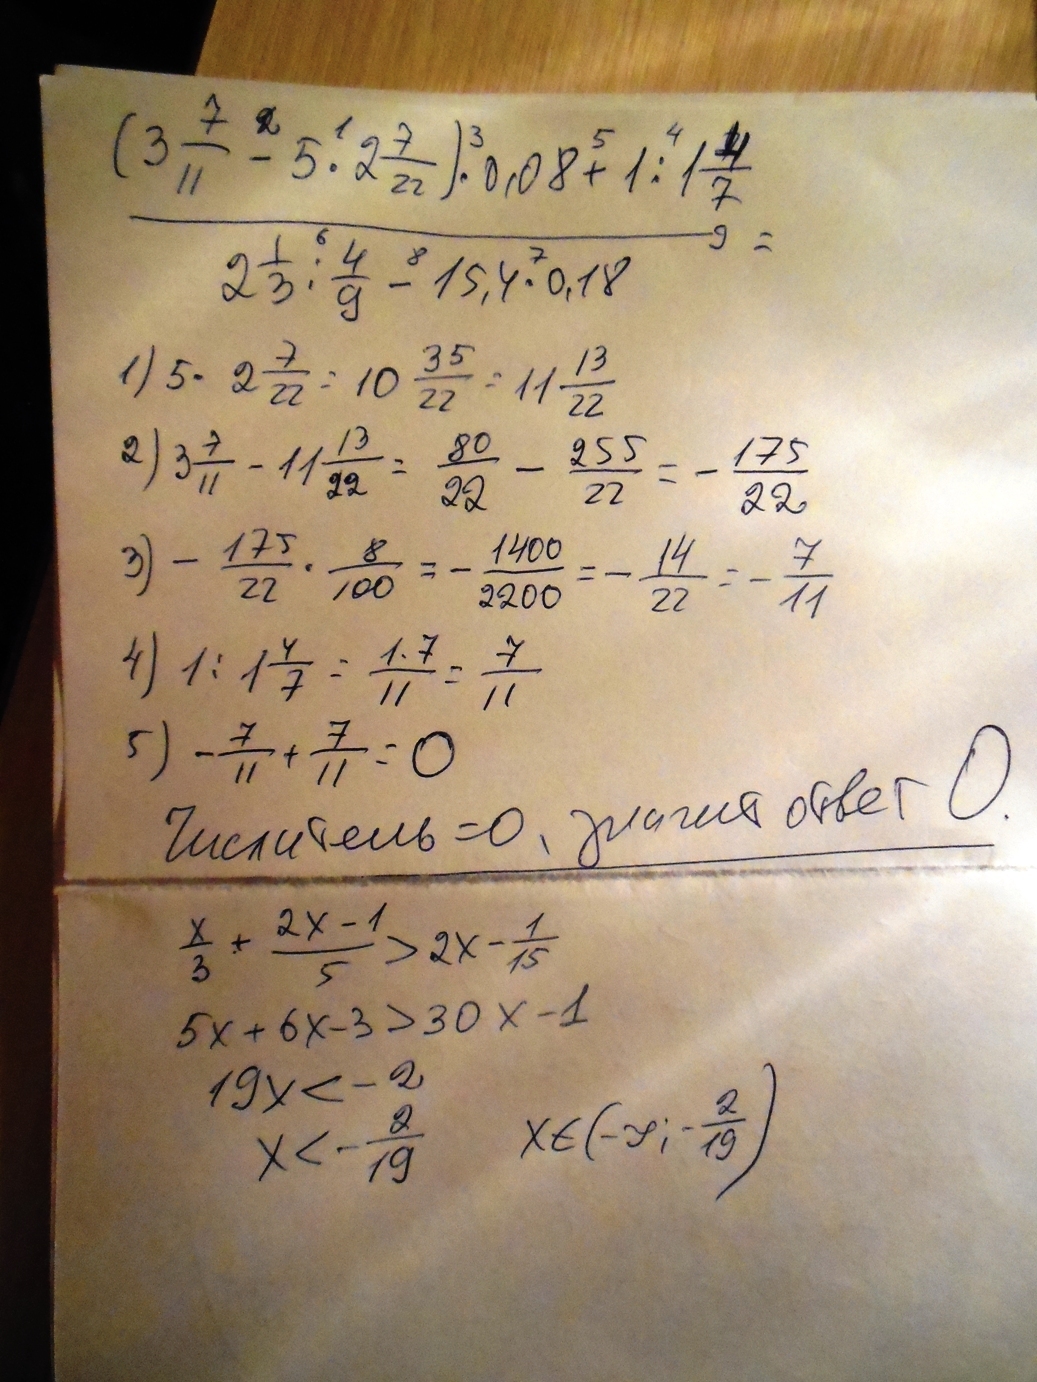 (3 7/11 -² 5 ·¹ 2 7/22) ·³ 0,08 +⁵ 1 :⁴ 1 4/7
2 1/3 :⁶ 4/9 -⁸ 15,4 ·⁷ 0,18 9 =
1) 5 · 2 7/22 = 10 35/22 = 11 13/22
2) 3 7/11 - 11 13/22 = 80/22 - 255/22 = - 175/22
3) - 175/22 · 8/100 = - 1400/2200 = - 14/22 = - 7/11
4) 1 : 1 4/7 = 1·7/11 = 7/11
5) - 7/11 + 7/11 = 0
Числитель = 0, значит ответ 0.
x/3 + 2x-1/5 > 2x - 1/15
5x + 6x - 3 > 30x - 1
19x < - 2
x < - 2/19 x ∈ (-∞; - 2/19)